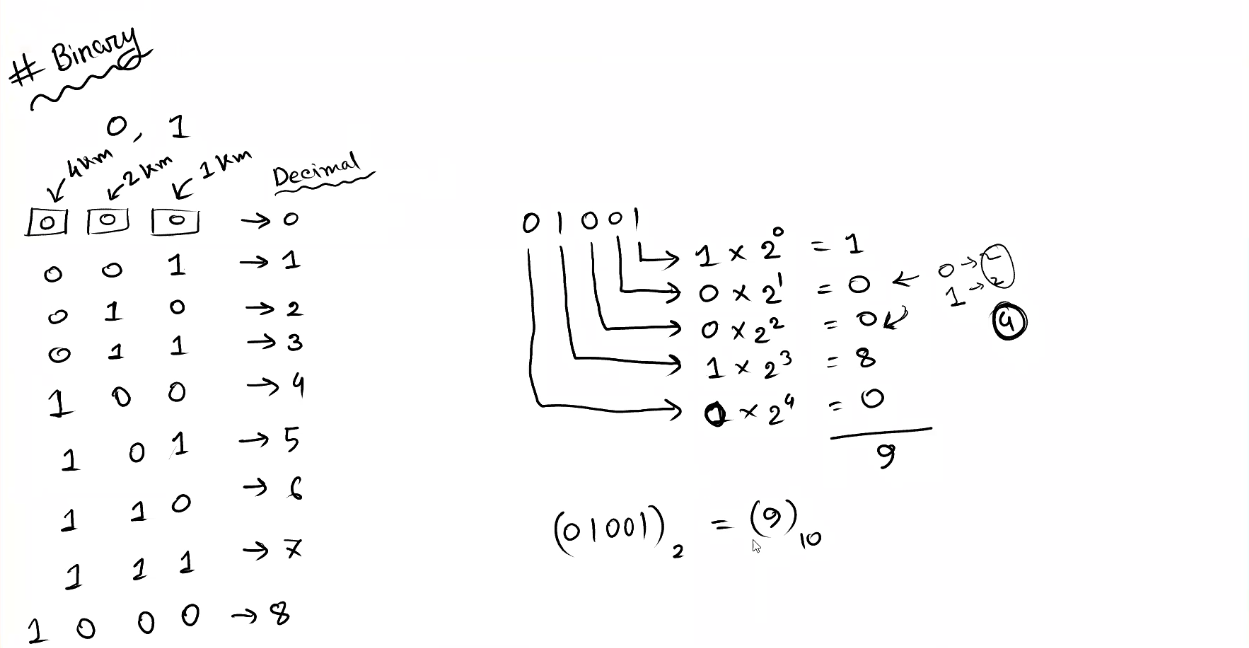 # Binary
0, 1
4km 2km 1km Decimal
0 0 0 → 0
0 0 1 → 1
0 1 0 → 2
0 1 1 → 3
1 0 0 → 4
1 0 1 → 5
1 1 0 → 6
1 1 1 → 7
1 0 0 0 → 8
0 1 0 0 1
1 × 2⁰ = 1
0 × 2¹ = 0 ←
0 × 2² = 0
1 × 2³ = 8
0 × 2⁴ = 0
9
0 →
1 → 2
(01001)₂ = (9)₁₀